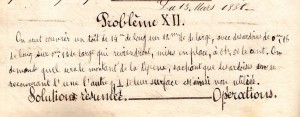 Du 13 Mars 1880.
Problème XII.
On veut couvrir un toit de 14m de long sur 12m de large, avec des ardoises de 0m
de long sur de large qui reviendront, mises en place, à le cent. On
demande quel sera le montant de la dépense, sachant que les ardoises se
recouvrant d'une l'autre leur surface est ainsi non utilisée.
Solutions résumées. Opérations.